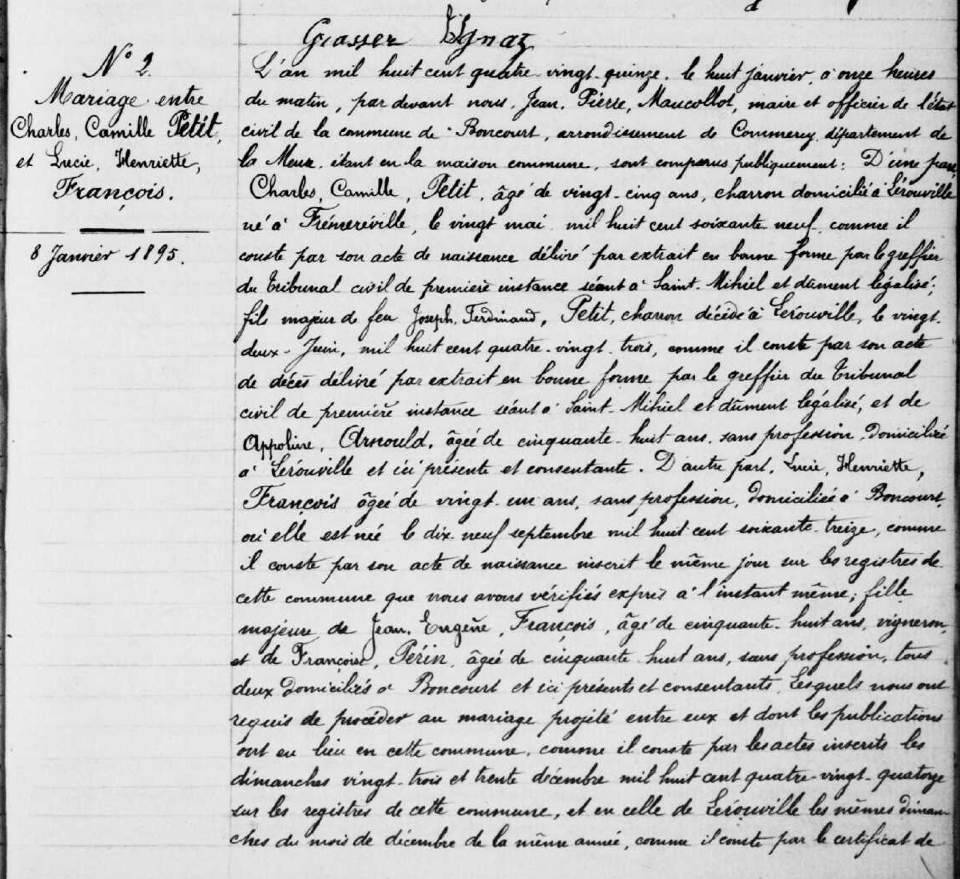 Grasser Ignaz
N° 2
Mariage entre
Charles, Camille Petit,
et Lucie, Henriette,
François.
8 Janvier 1895.
L'an mil huit cent quatre-vingt-quinze, le huit janvier, à onze heures
du matin, par devant nous, Jean, Pierre, Maucollot, maire et officier de l'état
civil de la commune de Boncourt, arrondissement de Commercy, département de
la Meuse, étant en la maison commune, sont comparus publiquement: D'une part,
Charles, Camille, Petit, âgé de vingt-cinq ans, charron domicilié à Lérouville
né à Frémeréville, le vingt mai mil huit cent soixante neuf, comme il
conste par son acte de naissance délivré par extrait en bonne forme par le greffier
du Tribunal civil de première instance séant à Saint-Mihiel et dûment légalisé;
fils majeur de feu Joseph, Ferdinand, Petit, charron décédé à Lérouville, le vingt-
deux-Juin, mil huit cent quatre-vingt-trois, comme il conste par son acte
de décès délivré par extrait en bonne forme par le greffier du Tribunal
civil de première instance séant à Saint-Mihiel et dûment légalisé; et de
Appoline, Arnould, âgée de cinquante-huit ans, sans profession, domiciliée
à Lérouville et ici présente et consentante. D'autre part, Lucie, Henriette,
François âgée de vingt-un ans, sans profession, domiciliée à Boncourt,
où elle est née le dix-neuf septembre mil huit cent soixante-treize, comme
il conste par son acte de naissance inscrit le même jour sur les registres de
cette commune que nous avons vérifiés exprès à l'instant même; fille
majeure de Jean, Eugène, François, âgé de cinquante-huit ans, vigneron,
et de Françoise, Périn, âgée de cinquante-huit ans, sans profession, tous
deux domiciliés à Boncourt et ici présents et consentants, Lesquels nous ont
requis de procéder au mariage projeté entre eux et dont les publications
ont eu lieu en cette commune, comme il conste par les actes inscrits les
dimanches vingt-trois et trente décembre mil huit cent quatre-vingt-quatorze
sur les registres de cette commune, et en celle de Lérouville les mêmes diman-
ches du mois de décembre de la même année, comme il conste par le certificat de